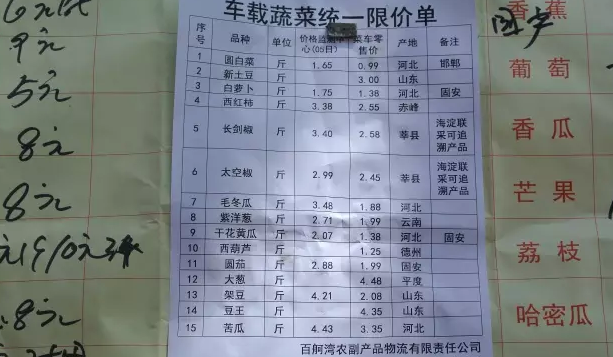 车载蔬菜统一限价单
序号 品种 单位 价格监测中心(05日) 菜车零售价 产地 备注
1 圆白菜 斤 1.65 0.99 河北 邯郸
2 新土豆 斤 3.00 山东
3 白萝卜 斤 1.75 1.38 河北 固安
4 西红柿 斤 3.38 2.55 赤峰
5 长剑椒 斤 3.40 2.58 莘县 海淀联采可追溯产品
6 太空椒 斤 2.99 2.45 莘县 海淀联采可追溯产品
7 毛冬瓜 斤 3.48 1.88 河北
8 紫洋葱 斤 2.71 1.99 云南
9 干花黄瓜 斤 2.07 1.38 河北 固安
10 西葫芦 斤 1.25 德州
11 圆茄 斤 2.88 1.99 固安
12 大葱 斤 4.48 平度
13 架豆 斤 4.21 2.08 山东
14 豆王 斤 4.35 山东
15 苦瓜 斤 4.43 3.35 河北
百舸湾农副产品物流有限责任公司
9元
5元
8元
8元
8元
国产
香蕉
葡萄
香瓜
芒果
荔枝
哈密瓜